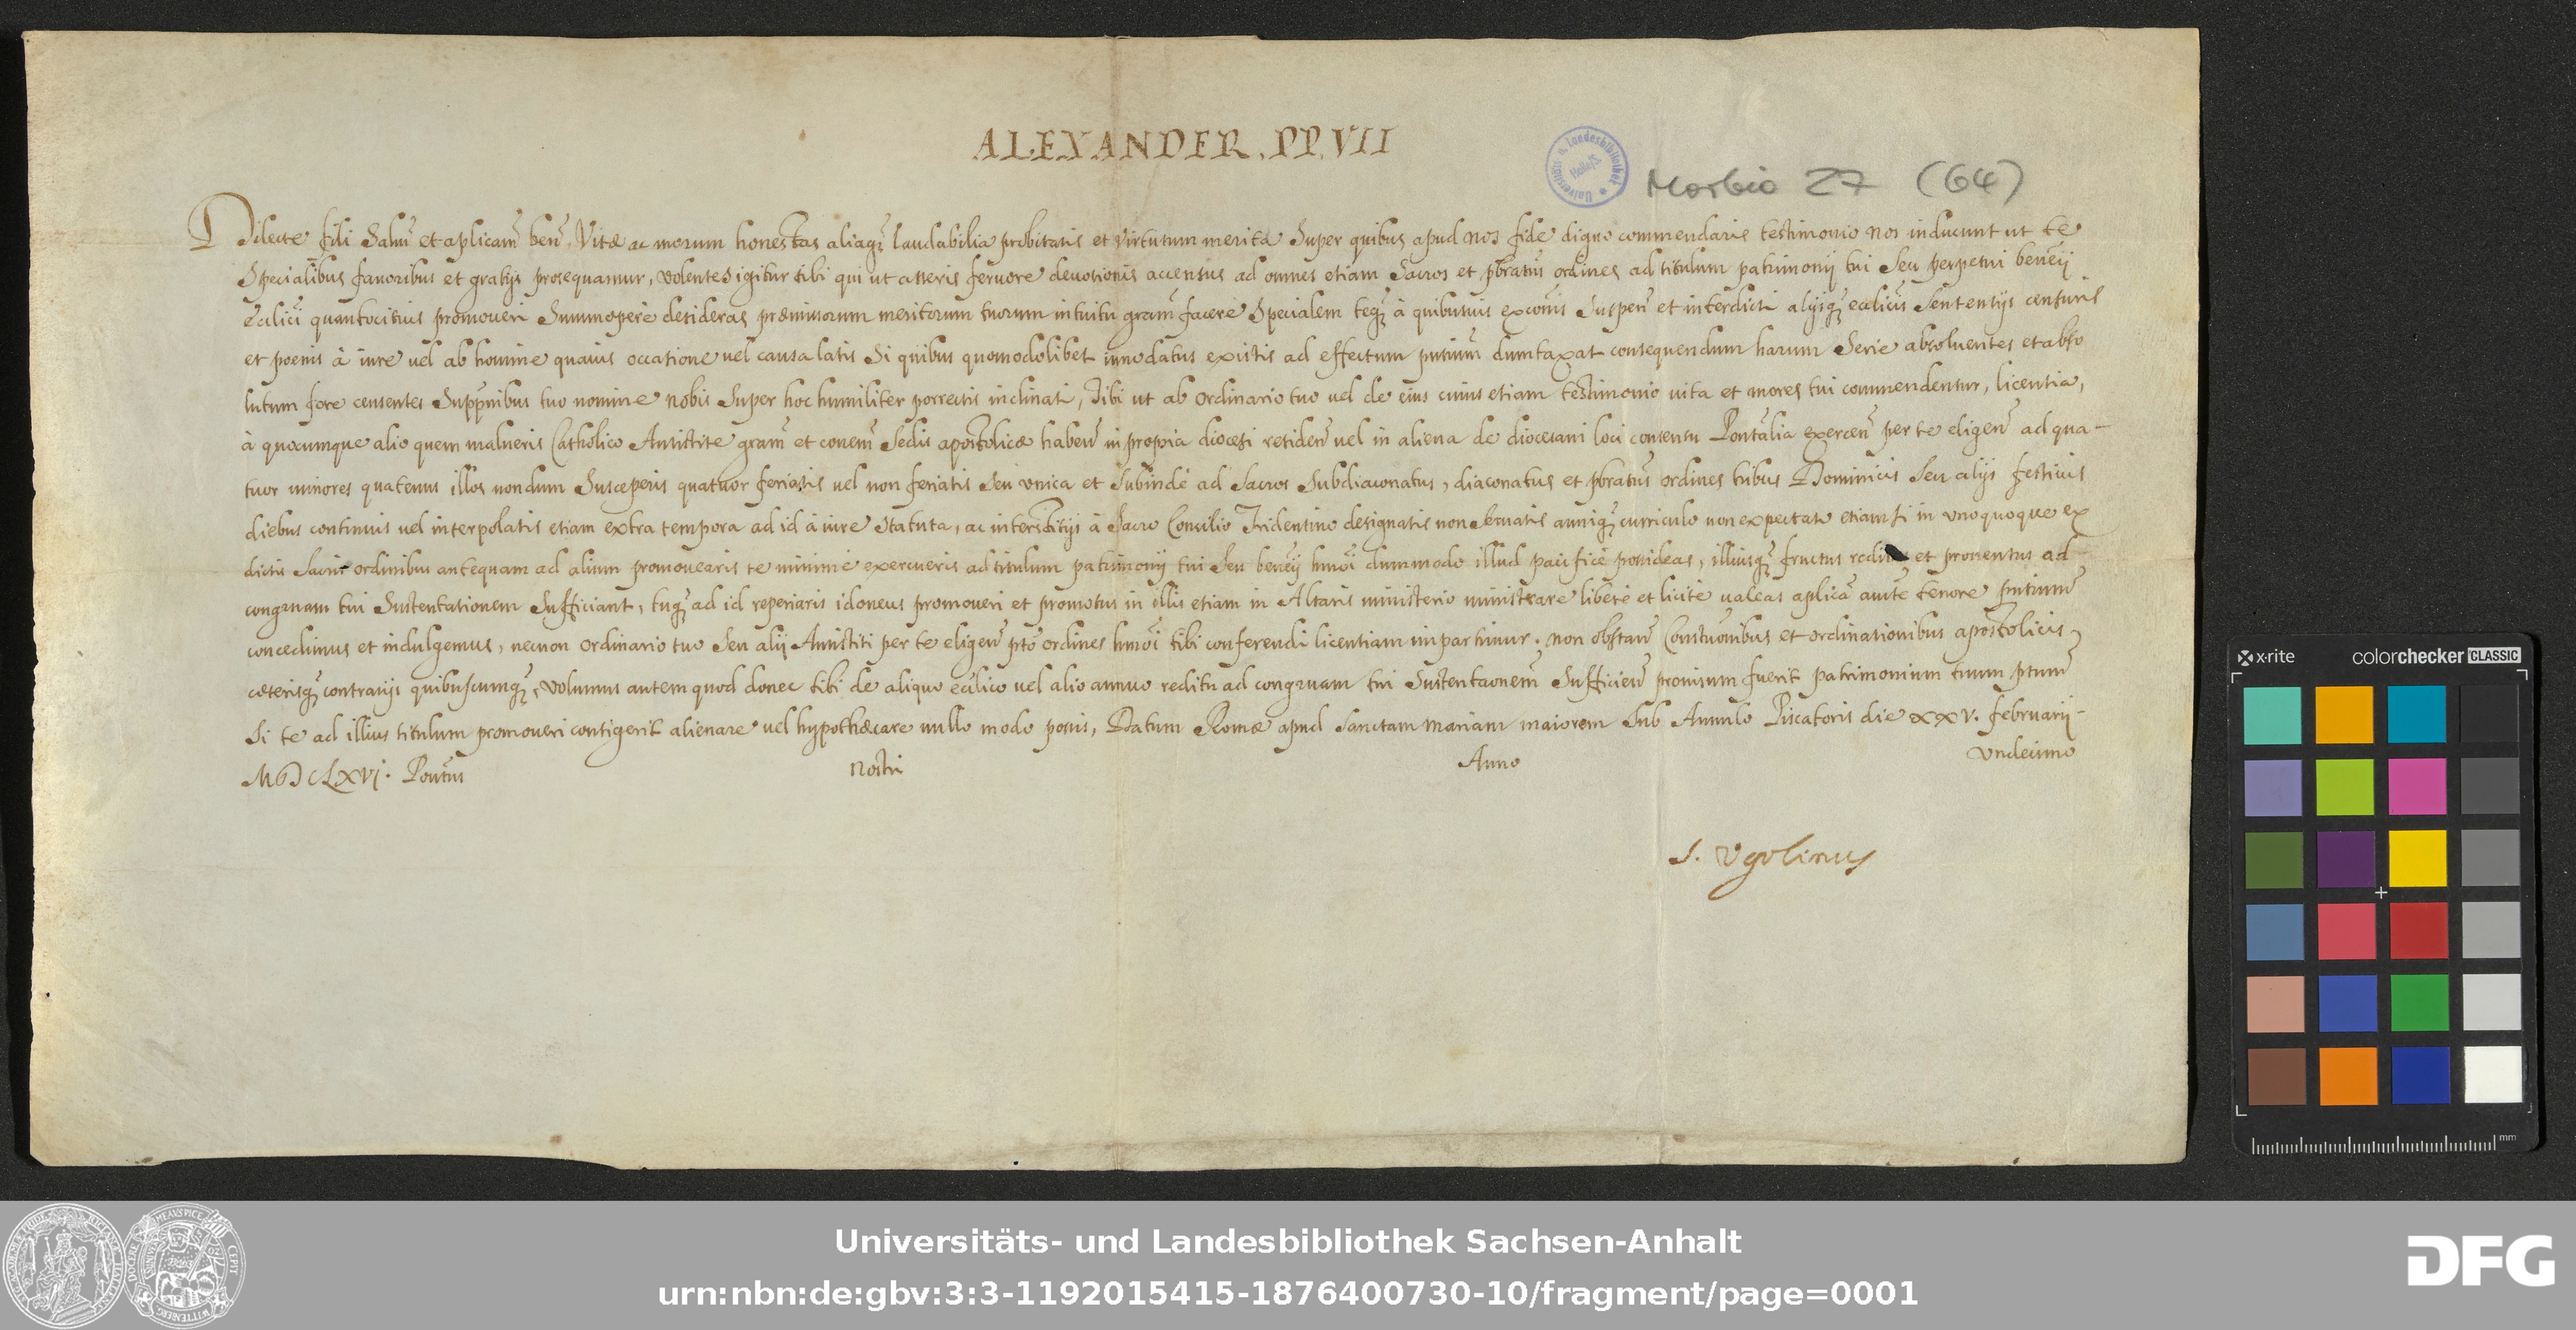 ALEXANDER. PP. VII
Universitäts u. Landesbibliothek Halle/S.
Morbio 27 (64)
Dilecte fili Salut̃ et aplicam̃ ben̄. Vitæ ac morum honestas aliaq; laudabilia probitatis et virtutum merita Super quibus apud nos fide digno commendaris testimonio nos inducunt ut te
Specialibus fauoribus et gratijs prosequamur, volentes igitur tibi qui ut asseris feruore deuotionis accensus ad omnes etiam Sacros et pb̃ratus ordines ad titulum patrimonij tui Seu perpetui ben̄eij
Ecc̃lici quantocitius promoueri Summopere desideras præmissorum meritorum tuorum intuitu gram̃ facere Specialem teq; à quibusuis excom̃is Suspen̄ et interdicti alijsq; ecc̃licis Sententijs censuris
et poenis à iure uel ab homine quauis occasione uel causa latis Si quibus quomodolibet innodatus existis ad effectum pñtium dumtaxat consequendum harum Serie absoluentes et abso
lutum fore censentes Supp̃nibus tuo nomine nobis Super hoc humiliter porrectis inclinati, Tibi ut ab Ordinario tuo uel de eius cuius etiam testimonio uita et mores tui commendentur, licentia,
à quocumque alio quem malueris Catholico Antistite gram̃ et com̃em̃ Sedis apostolicæ haben̄ in propria diœcesi residen̄ uel in aliena de diœcesani loci consensu Pontãlia exercen̄ per te eligen̄ ad qua-
tuor minores quatenus illos nondum Susceperis quatuor feriatis uel non feriatis Seu vnica et Subinde ad Sacros Subdiaconatus, diaconatus et pb̃ratus ordines tribus Dominicis Seu alijs festiuis
diebus continuis uel interpolatis etiam extra tempora ad id à iure Statuta, ac interstitijs à Sacro Concilio Tridentino designatis non seruatis anniq; curriculo non expectato etiam si in vnoquoque ex
dictis Sacris ordinibus antequam ad alium promouearis te minime exercueris ad titulum patrimonij tui Seu ben̄eij hm̃oi dummodo illud pacifice possideas, illiusq; fructus redi et prouentus ad
congruam tui Sustentationem Sufficiant, tuq; ad id reperiaris idoneus promoueri et promotus in illis etiam in Altaris ministerio ministrare libere et licite ualeas aplicã aucte tenore pñtium
concedimus et indulgemus, necnon Ordinario tuo Seu alij Antistiti per te eligen̄ pto ordines hm̃oi tibi conferendi licentiam impartimur. non obstan̄ Constuonibus et ordinationibus apostolicis,
cæterisq; contrarijs quibuscumq;, Volumus autem quod donec tibi de aliquo ecc̃lico uel alio annuo reditu ad congruam tui Sustentaõnem Sufficien̄ prouisum fuerit patrimonium tuum ptum̃
Si te ad illius titulum promoueri contigerit alienare uel hypothæcare nullo modo possis, Datum Romæ apud Sanctam mariam maiorem Sub Annulo Piscatoris die XXV. februarij-
MDCLXVI. Pontus Nostri Anno Vndecimo
S. Vgolinus
x·rite colorchecker CLASSIC
mm
Universitäts- und Landesbibliothek Sachsen-Anhalt
urn:nbn:de:gbv:3:3-1192015415-1876400730-10/fragment/page=0001
DFG